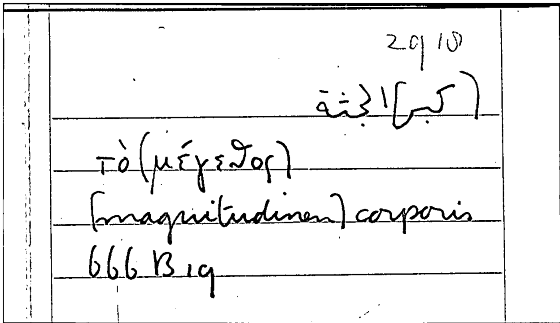 كبر] الجثة)
τὸ (μέγεθος)
[magnitudinem] corporis
666 B 19